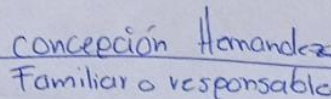 concepción Hernandez
Familiar o responsable